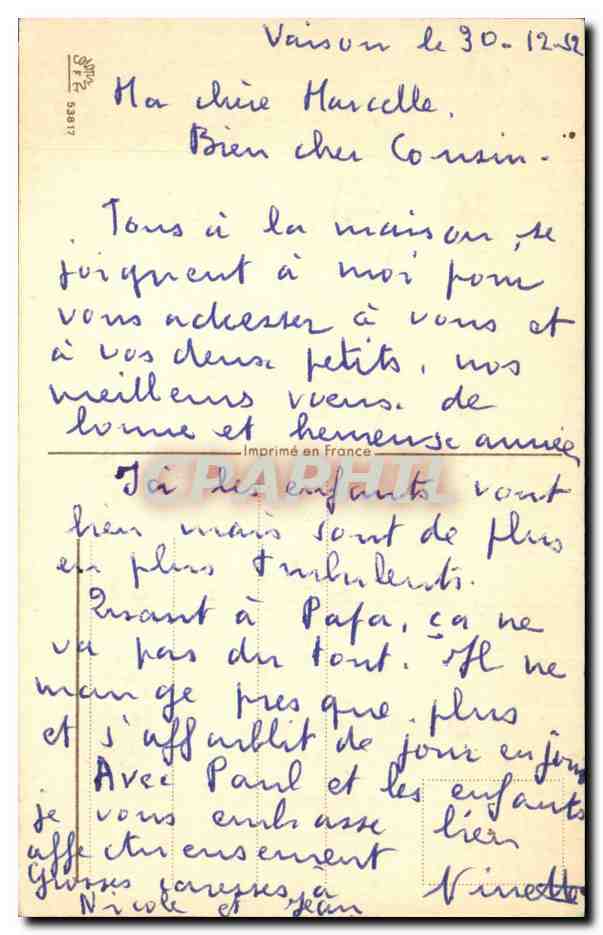 Vaison le 30-12-52
Ma chère Marcelle,
Bien cher Cousin.
Tous à la maison, se
joignent à moi pour
vous adresser à vous et
à vos deux petits, nos
meilleurs voeux de
bonne et heureuse année
Imprimé en France
CPAPHIL
Ici les enfants vont
bien mais sont de plus
en plus turbulents.
Quant à Papa, ça ne
va pas du tout. Il ne
mange presque plus
et s'affaiblit de jour en jour
Avec Paul et les enfants
je vous embrasse bien
affectueusement
Grosses caresses à
Nicole et Jean
Ninette
53817